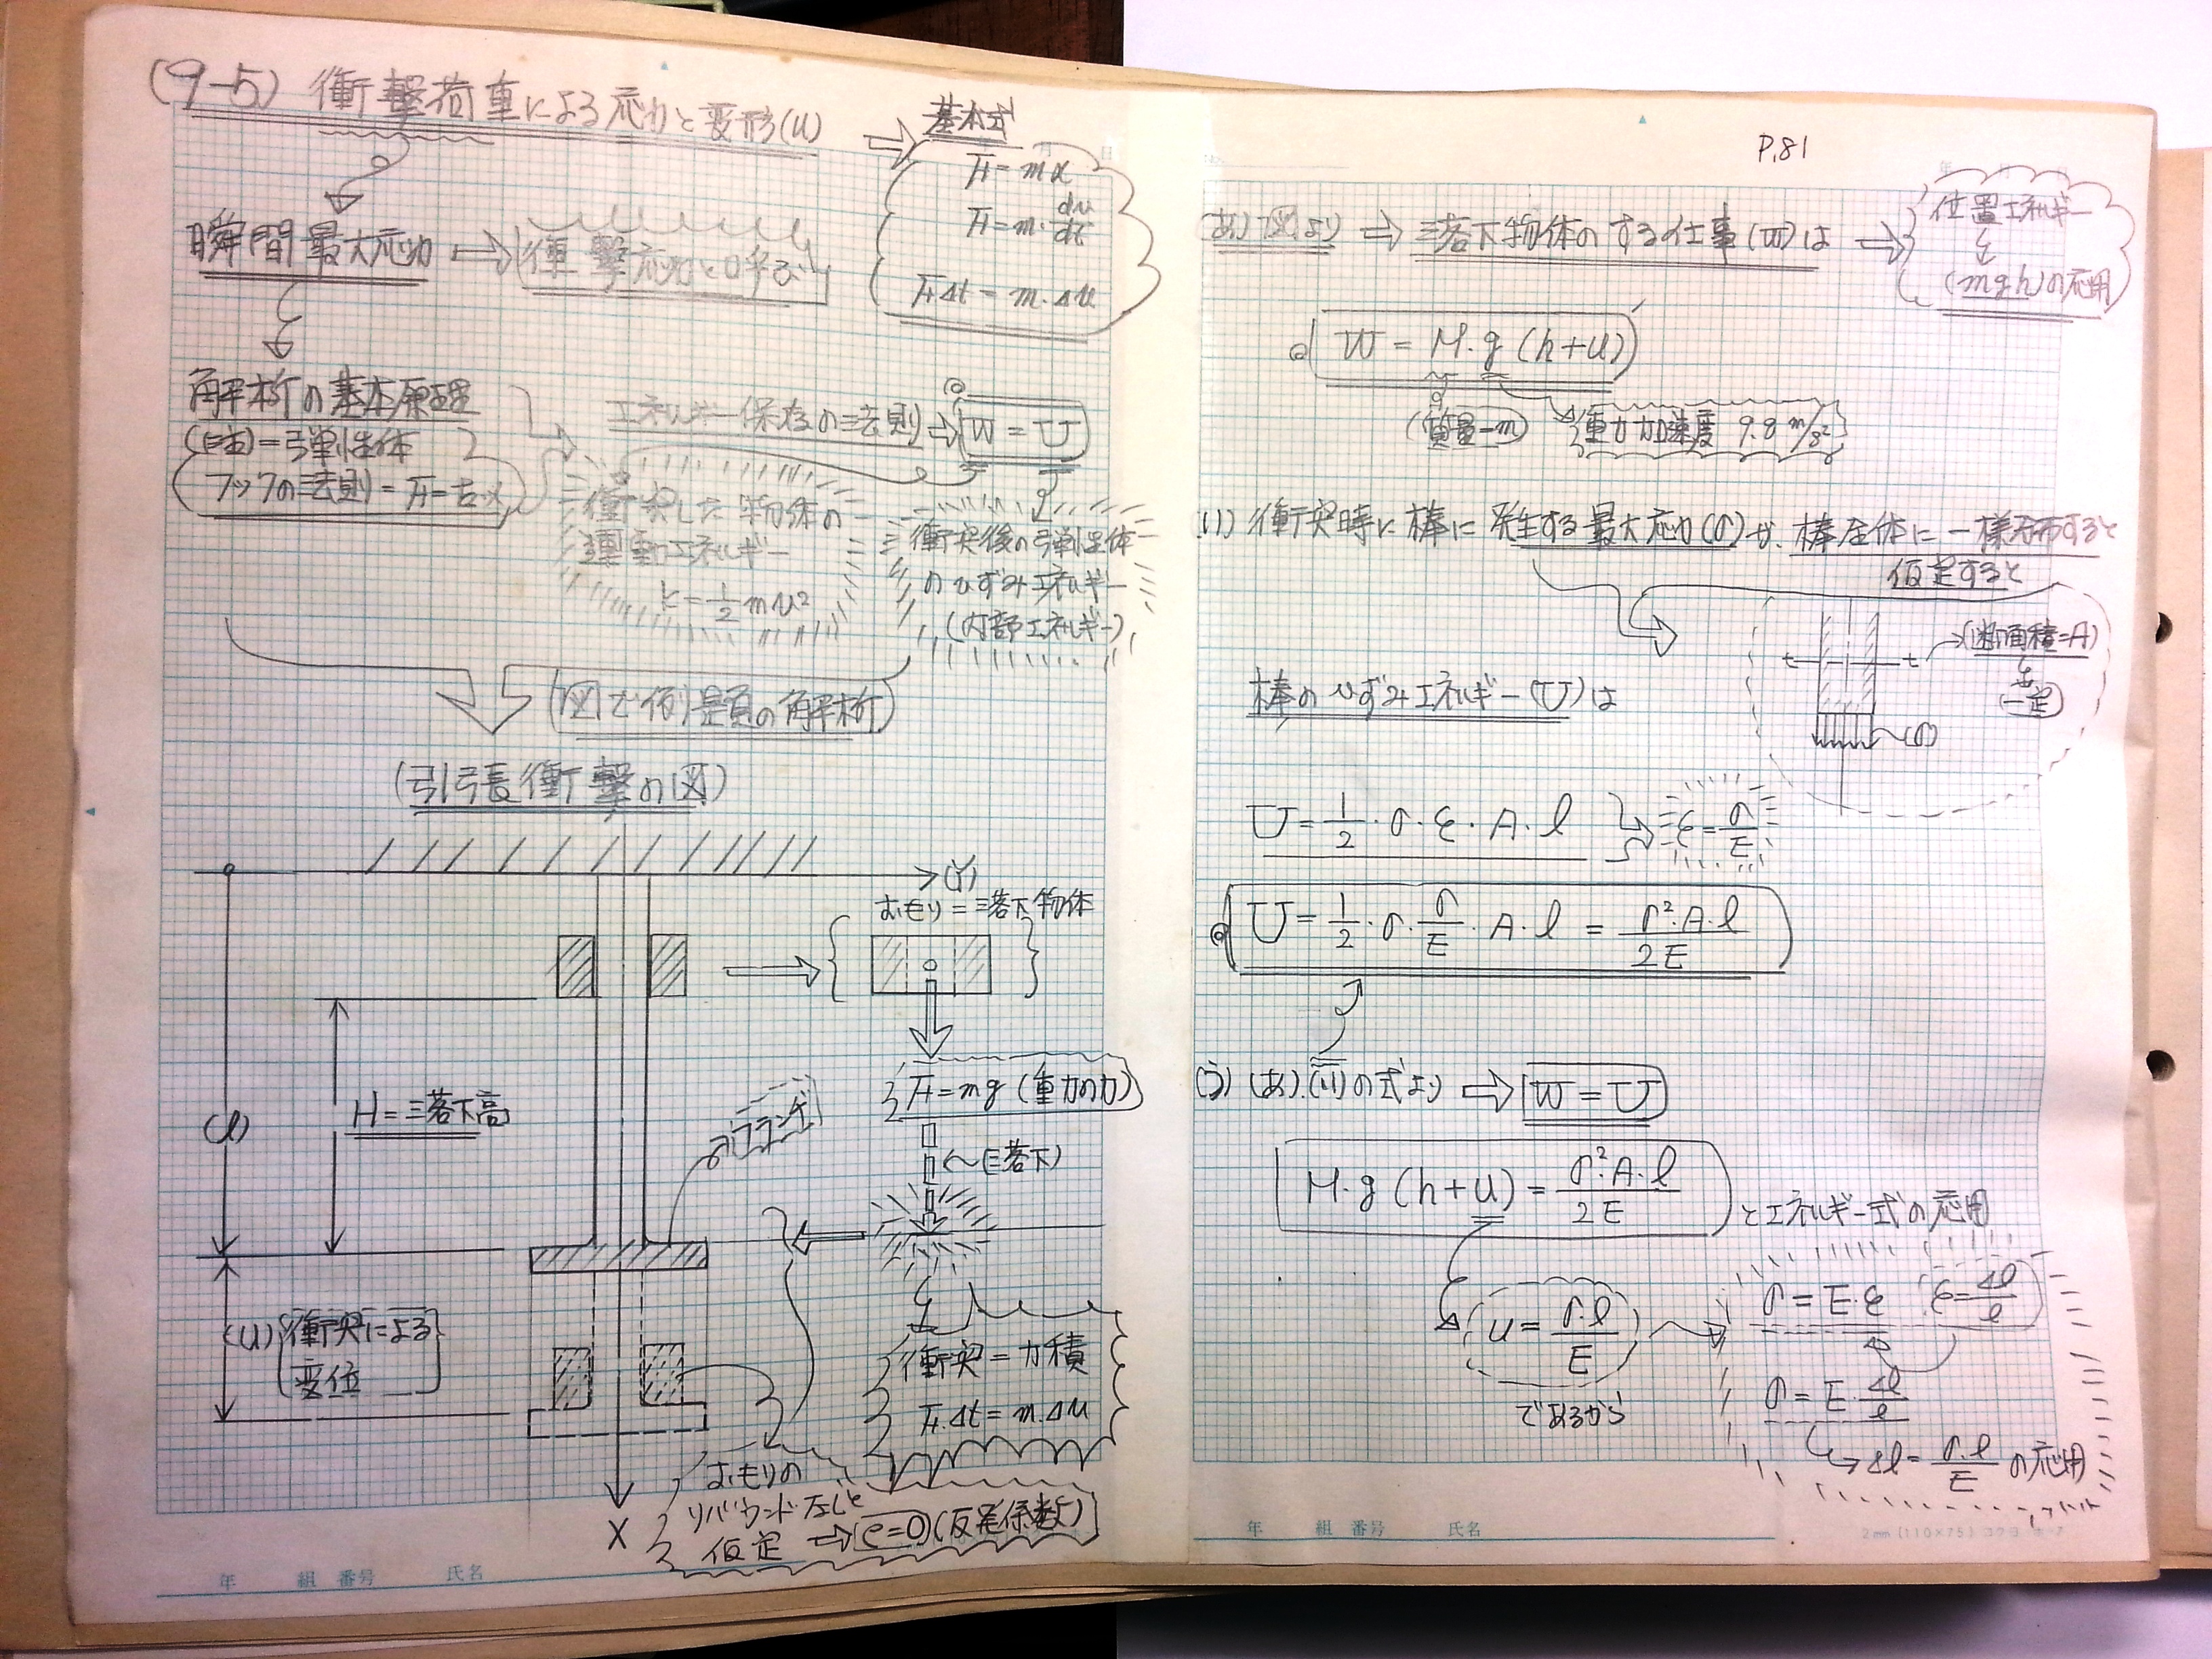 (9-5) 衝撃荷重による応力と変形(u)
基本式
F=mα
F=m·du/dt
F·Δt=m·Δu
瞬間最大応力
衝撃応力と呼ぶ
解析の基本原理
(注)=弾性体
フックの法則=F=k·x
エネルギー保存の法則
W=U
衝突した物体の
運動エネルギー
k=1/2mv²
衝突後の弾性体
のひずみエネルギー
(内部エネルギー)
(図で例題の解析)
(引張衝撃の図)
(Y)
おもり=落下物体
(l)
H=落下高
フランジ
F=mg (重力の力)
(落下)
(u) 衝突による
変位
衝突=力積
F·Δt=m·Δu
X
おもりの
リバウンドなしと
仮定
e=0 (反発係数)
年 組 番号 氏名
P.81
(あ) 図より
落下物体のする仕事(W)は
位置エネルギー
(mgh)の応用
W=M·g(h+u)
(質量=m)
重力加速度 9.8 m/s²
(い) 衝突時に棒に発生する最大応力(σ)が、棒全体に一様分布すると
仮定すると
(断面積=A)
一定
(σ)
棒のひずみエネルギー(U)は
U=1/2·σ·ε·A·l
ε=σ/E
U=1/2·σ·σ/E·A·l=σ²·A·l/2E
(う) (あ).(い)の式より
W=U
M·g(h+u)=σ²·A·l/2E
とエネルギー式の応用
u=σ·l/E
であるから
σ=E·ε
ε=Δl/l
σ=E·Δl/l
Δl=σ·l/E の応用
年 組 番号 氏名
2mm (110×75) コクヨ